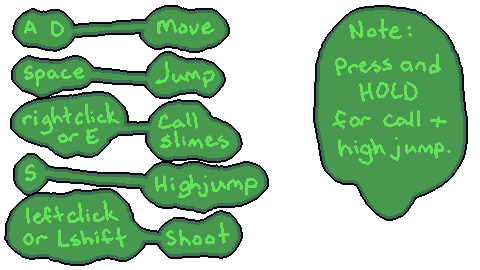 A D Move
space Jump
rightclick
or E
Call
slimes
S Highjump
leftclick
or Lshift
Shoot
Note:
Press and
HOLD
for call +
high jump.